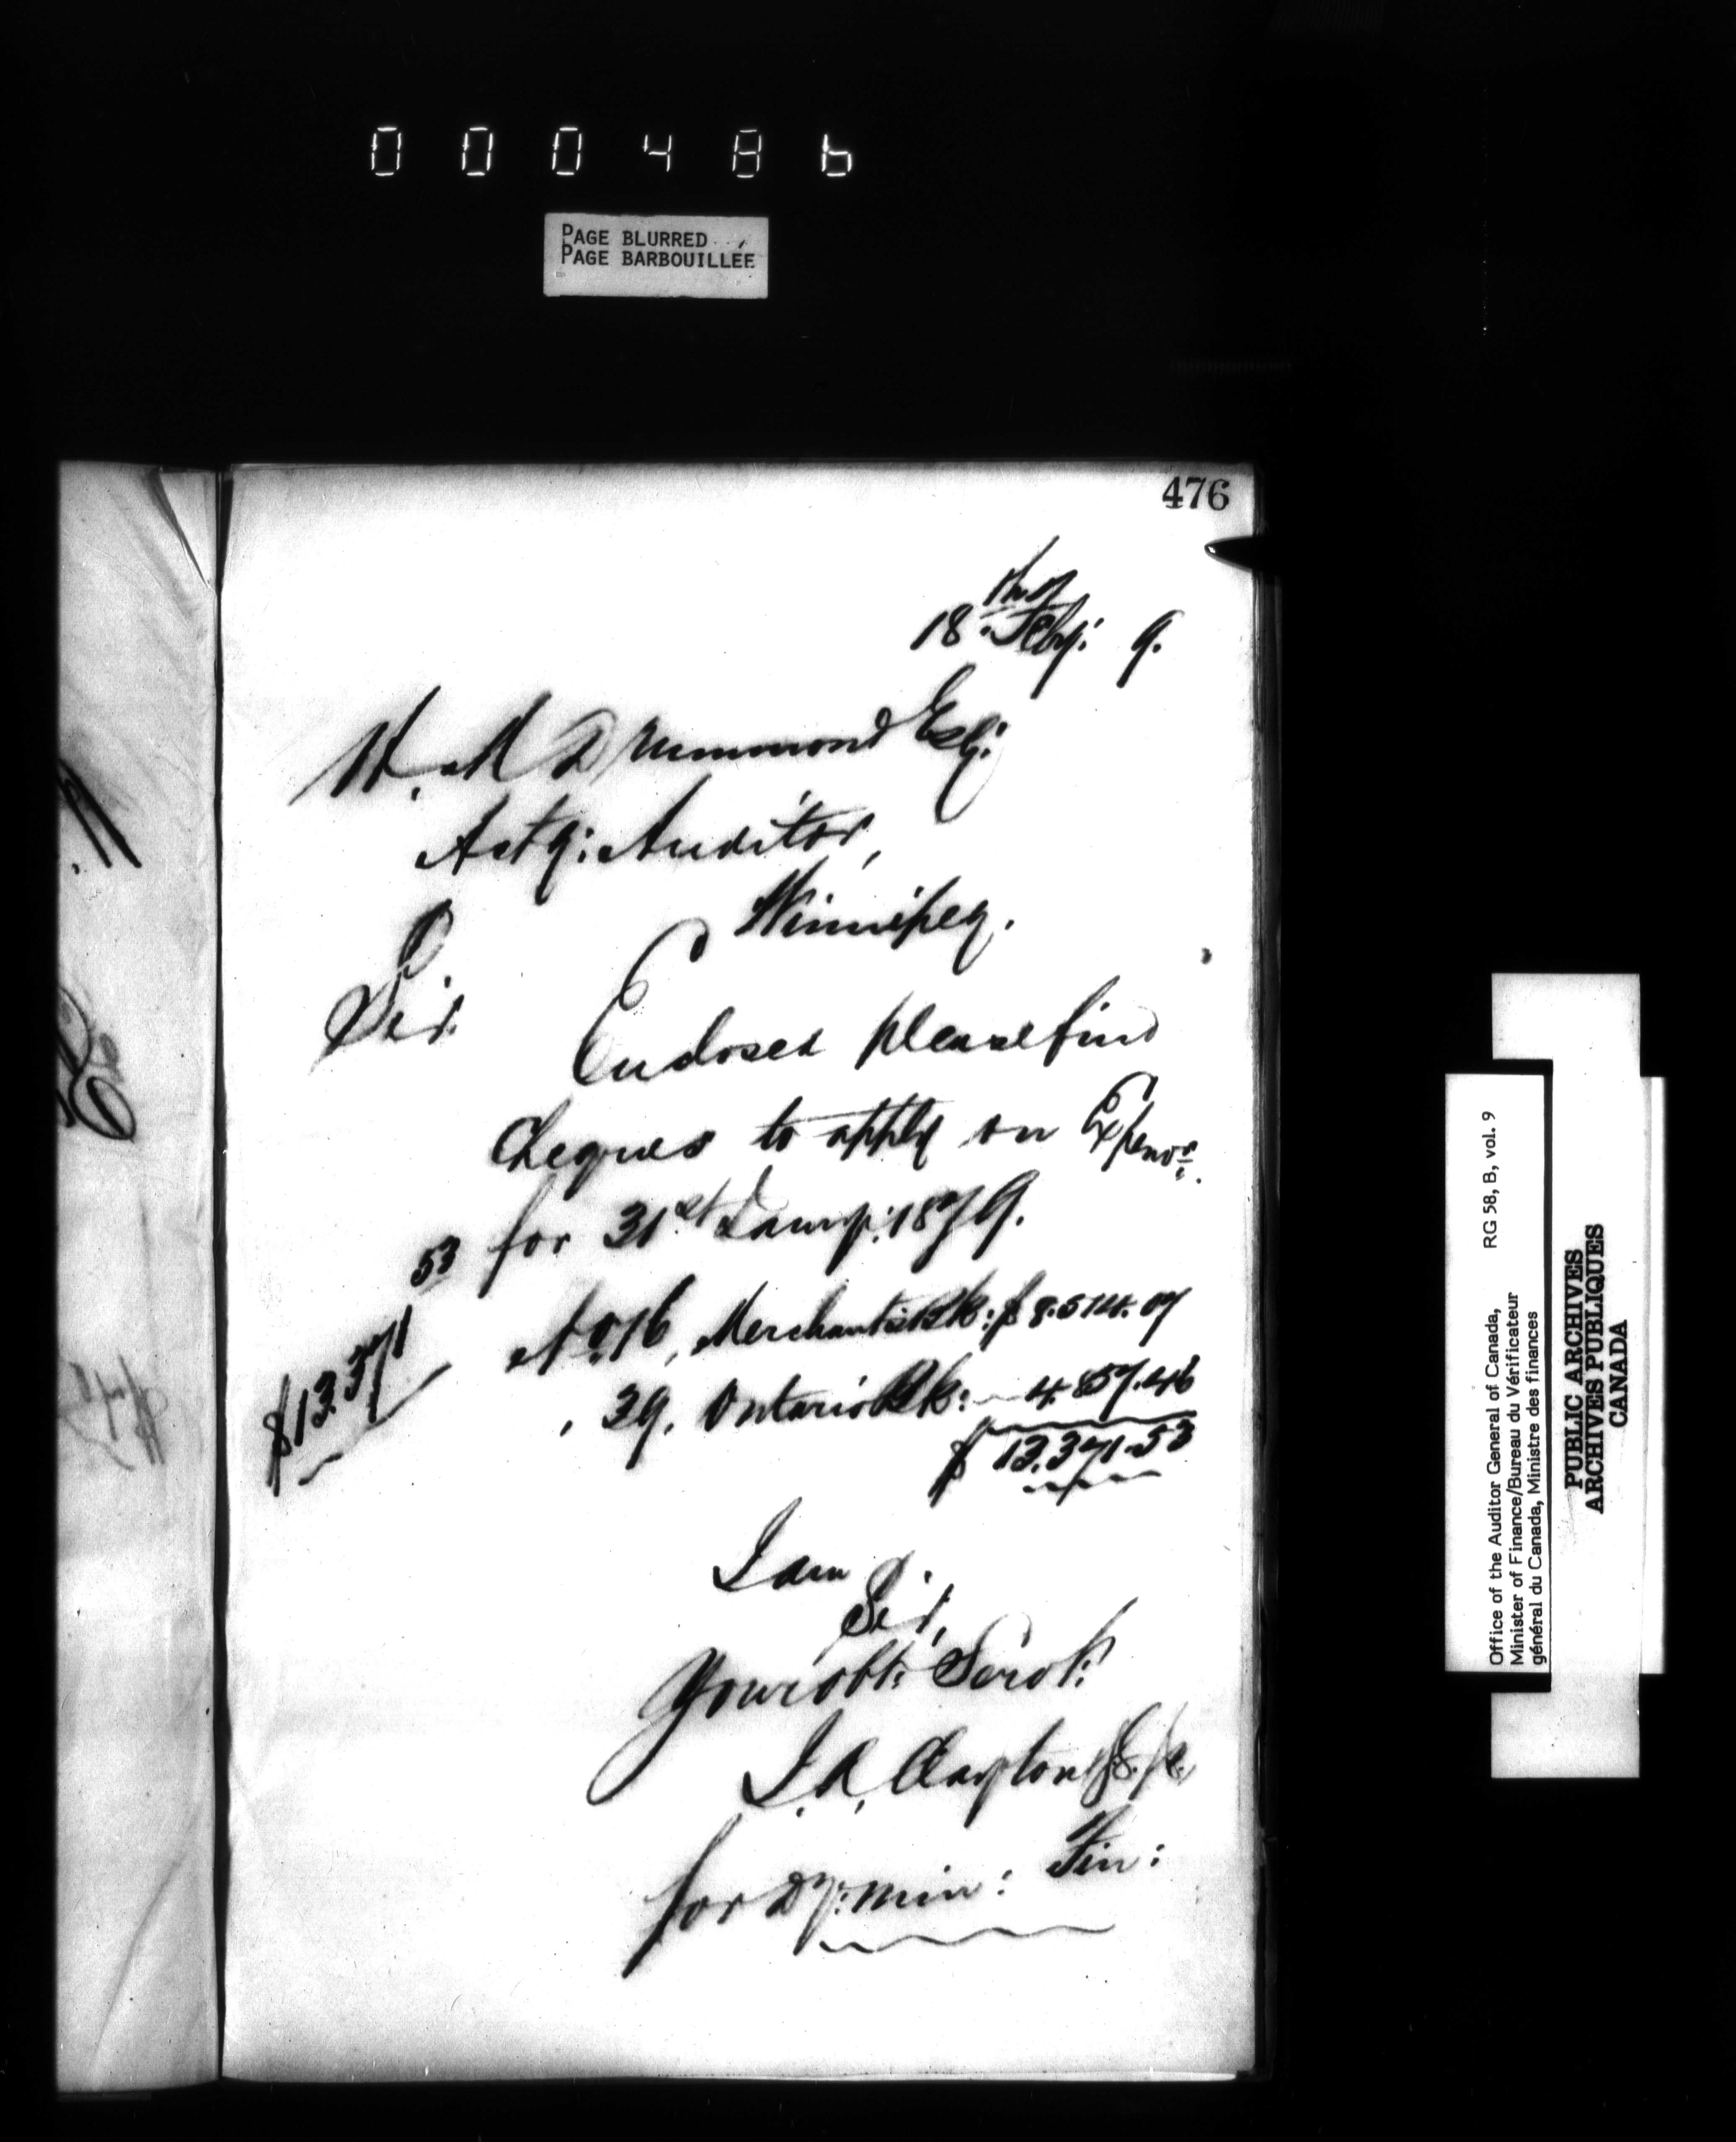 00048b
PAGE BLURRED
PAGE BARBOUILLÉE
476
18th Feby: 9.
H. M Drummond Esq:
Actg: Auditor,
Winnipeg.
Sir
Enclosed please find
Cheques to apply on Expenrs.
for 31st Jany: 1879.
No 16, Merchants Bk: $ 8.514.07
" 39, Ontario Bk: 4.857.46
$ 13.371.53
$13.371 53
I am
Sir,
Your obt: Servt:
J. A. Clayton
for Dy: Min: Fin:
Office of the Auditor General of Canada, RG 58, B, vol. 9
Minister of Finance/Bureau du Vérificateur
général du Canada, Ministre des finances
PUBLIC ARCHIVES
ARCHIVES PUBLIQUES
CANADA